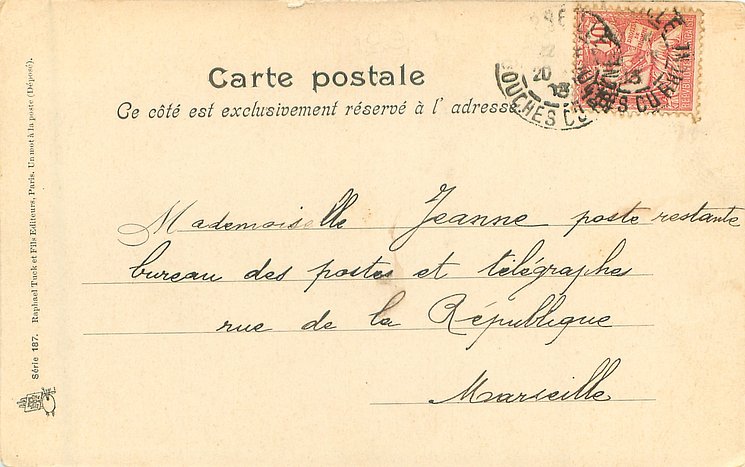 Carte postale
Ce côté est exclusivement réservé à l' adresse.
20
13
BOUCHES DU RH
13
10
Mademoiselle Jeanne poste restante
bureau des postes et télégraphes
rue de la République
Marseille
Série 187. Raphael Tuck et Fils Editeurs, Paris. Un mot à la poste (Déposé).